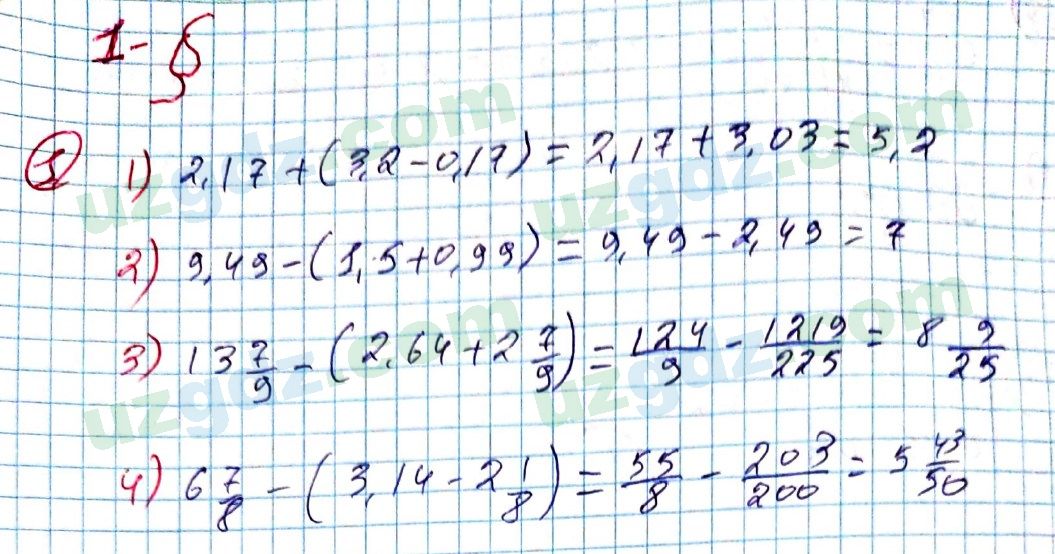 1-§
1 1) 2,17+(3,2-0,17)=2,17+3,03=5,2
2) 9,49-(1,5+0,99)=9,49-2,49=7
3) 13 7/9-(2,64+2 7/9)=124/9-1219/225=8 9/25
4) 6 7/8-(3,14-2 1/8)=55/8-203/200=5 43/50
uzgdz.com uzgdz.com
uzgdz.com uzgdz.com